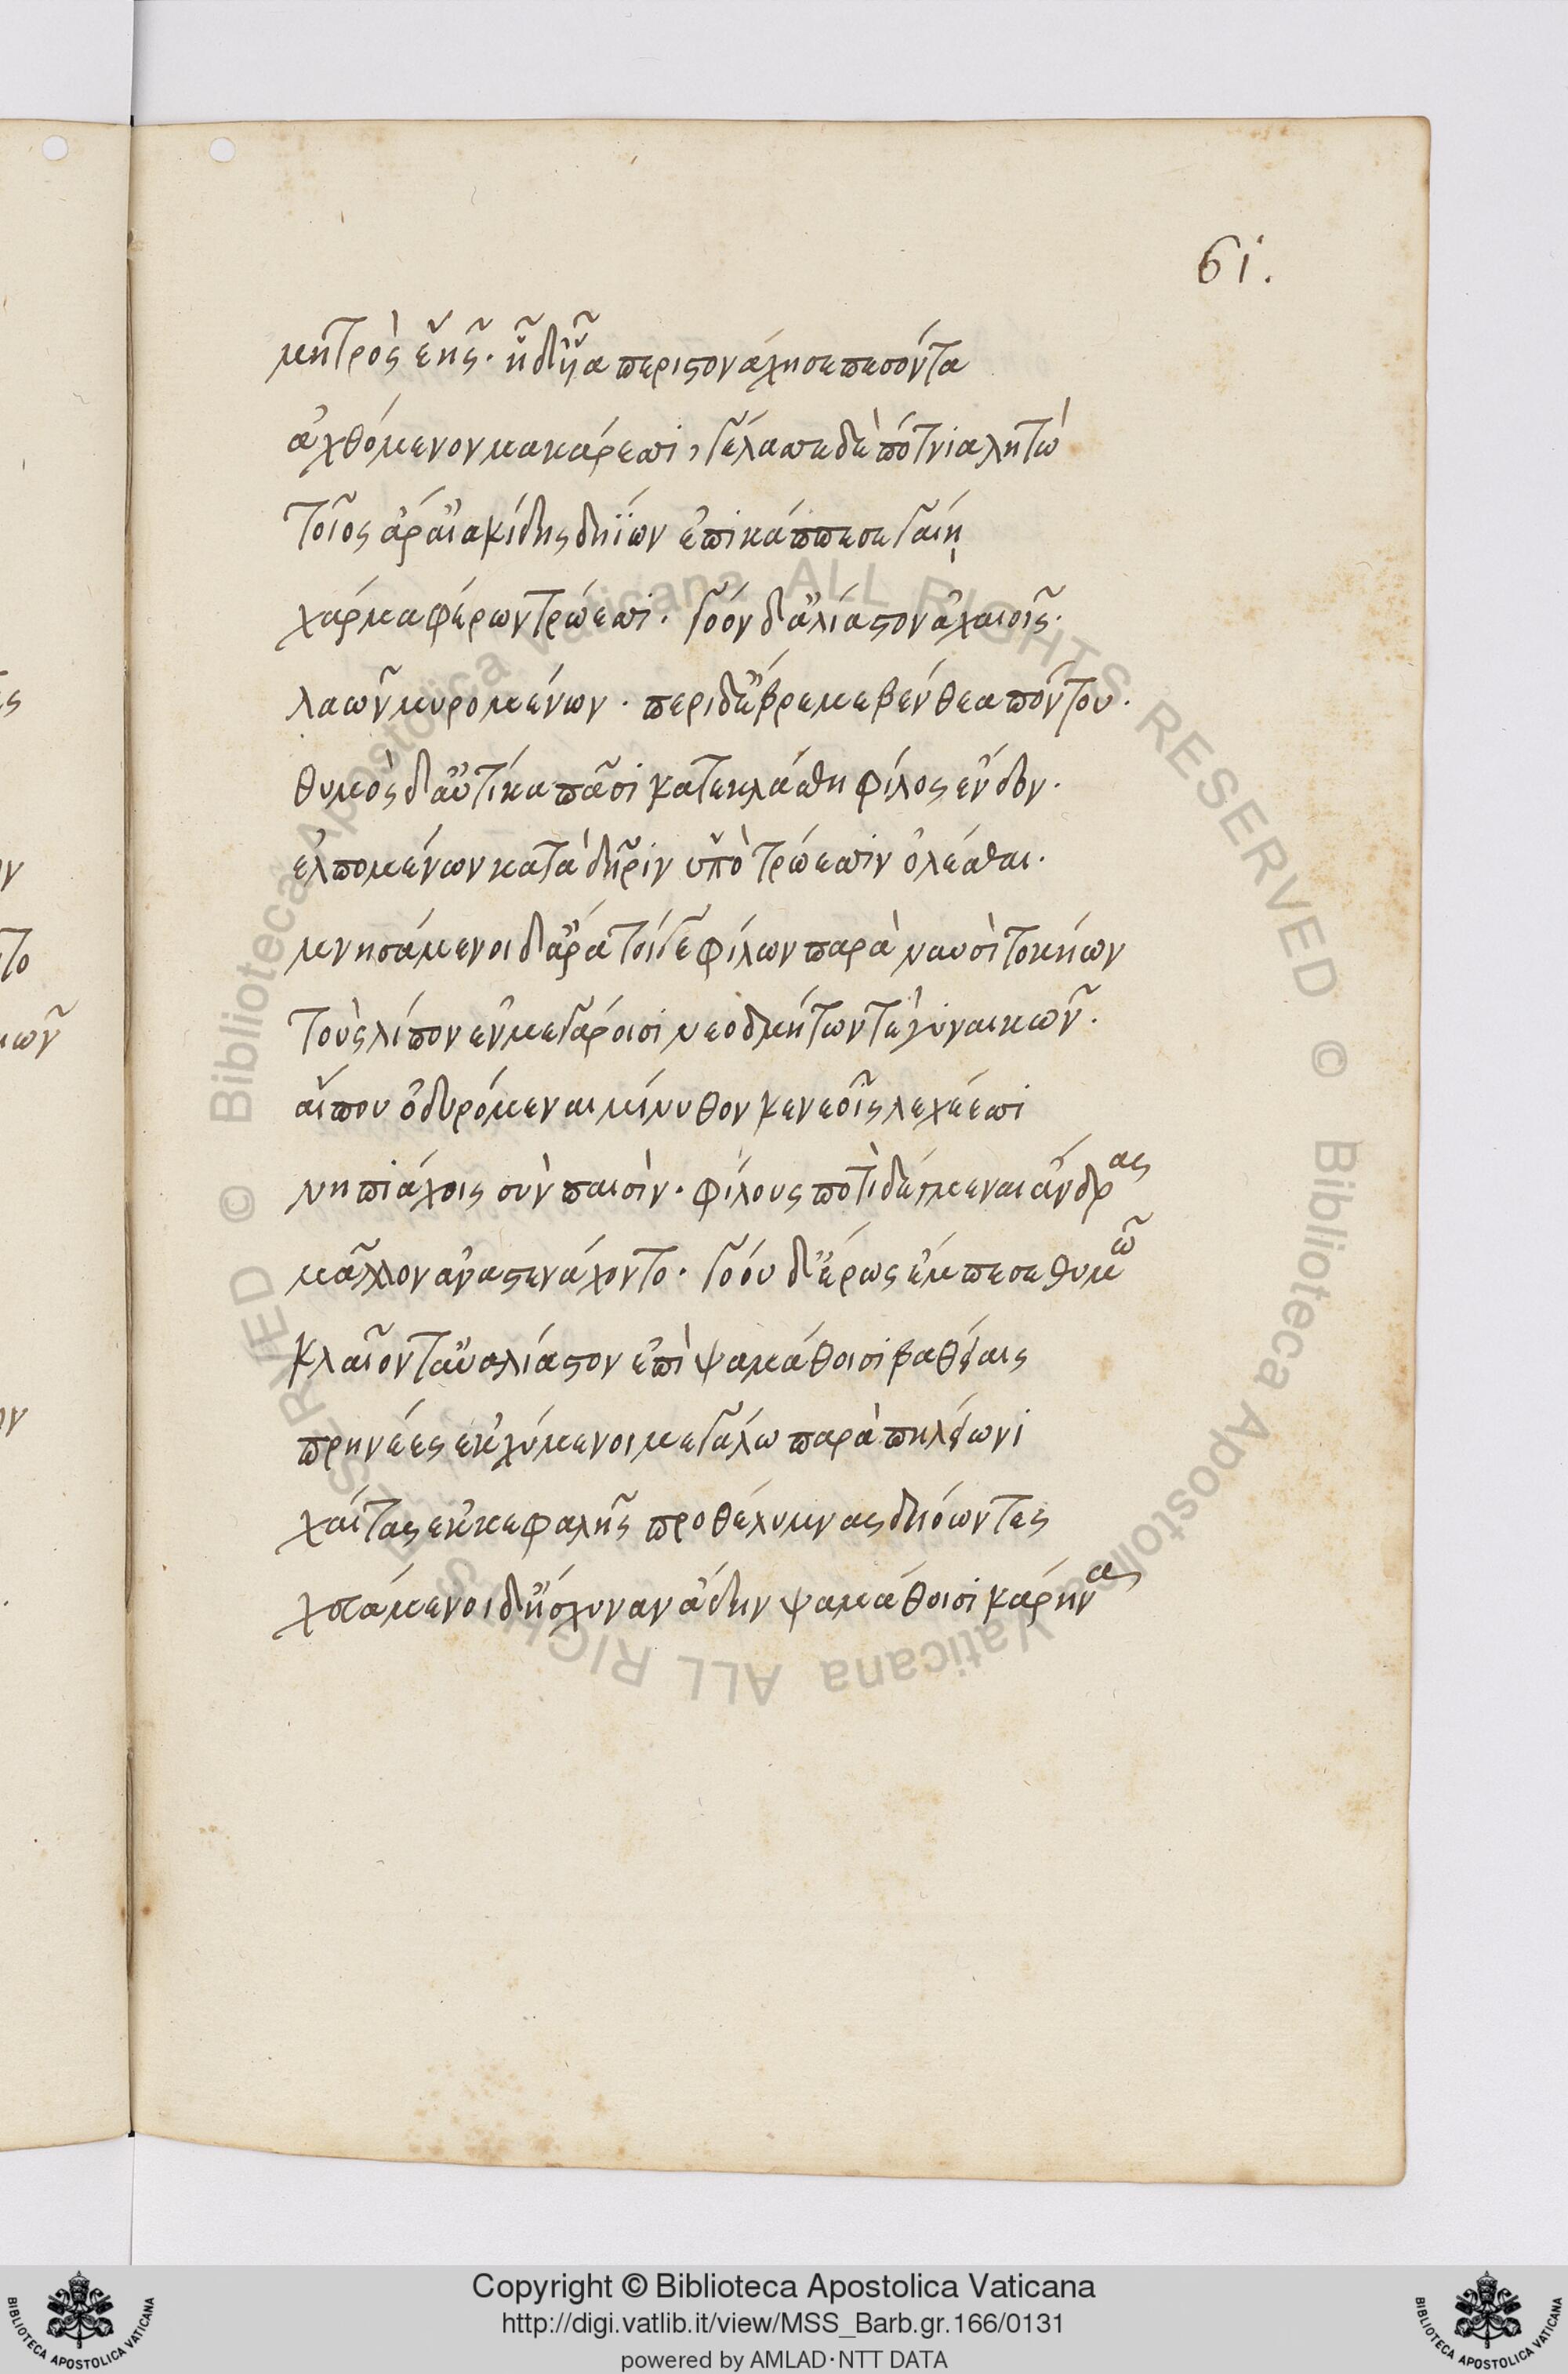 61.
μητρὸς ἑῆς· ἡ δ' ἦα περιστονάχησε πεσόντα
ἀχθόμενον μακάρεσσι, γέλασσε δὲ πότνια λητὼ
τοῖος ἄρ' αἰακίδης δηΐων ἐπικάππεσε γαίῃ
χάρμα φέρων τρώεσσι. γόον δ' ἀλίαστον ἀχαιοῖς.
λαῶν μυρομένων. περὶ δ' ἔβρεμε βένθεα πόντου.
θυμὸς δ' αὐτίκα πᾶσι κατεκλάσθη φίλος ἔνδον.
ἐλπομένων κατὰ δῆριν ὑπὸ τρώεσσιν ὀλέσθαι.
μνησάμενοι δ' ἄρα τοίγε φίλων παρὰ ναυσὶ τοκήων
τοὺς λίπον ἐν μεγάροισι νεοδμήτων τε γυναικῶν.
αἵ που ὀδυρόμεναι μίνυθον κενεοῖς λεχέεσσι
νηπιάχοις σὺν παισὶν. φίλους ποτιδέγμεναι ἄνδρας
μᾶλλον ἀναστενάχοντο. γόου δ' ἔρως ἔμπεσε θυμῶ
κλαῖον τ' αὖ ἀλίαστον ἐπὶ ψαμάθοισι βαθείαις
πρηνέες ἐκχύμενοι μεγάλω παρὰ πηλείωνι
χαίτας ἐκ κεφαλῆς προθελύμνας δηιόωντες
χευάμενοι δ' ᾔσχυναν ἄδην ψαμάθοισι κάρηνα
Copyright © Biblioteca Apostolica Vaticana
http://digi.vatlib.it/view/MSS_Barb.gr.166/0131
powered by AMLAD·NTT DATA
© Biblioteca Apostolica Vaticana ALL RIGHTS RESERVED
© Biblioteca Apostolica Vaticana ALL RIGHTS RESERVED
BIBLIOTECA APOSTOLICA VATICANA
BIBLIOTECA APOSTOLICA VATICANA